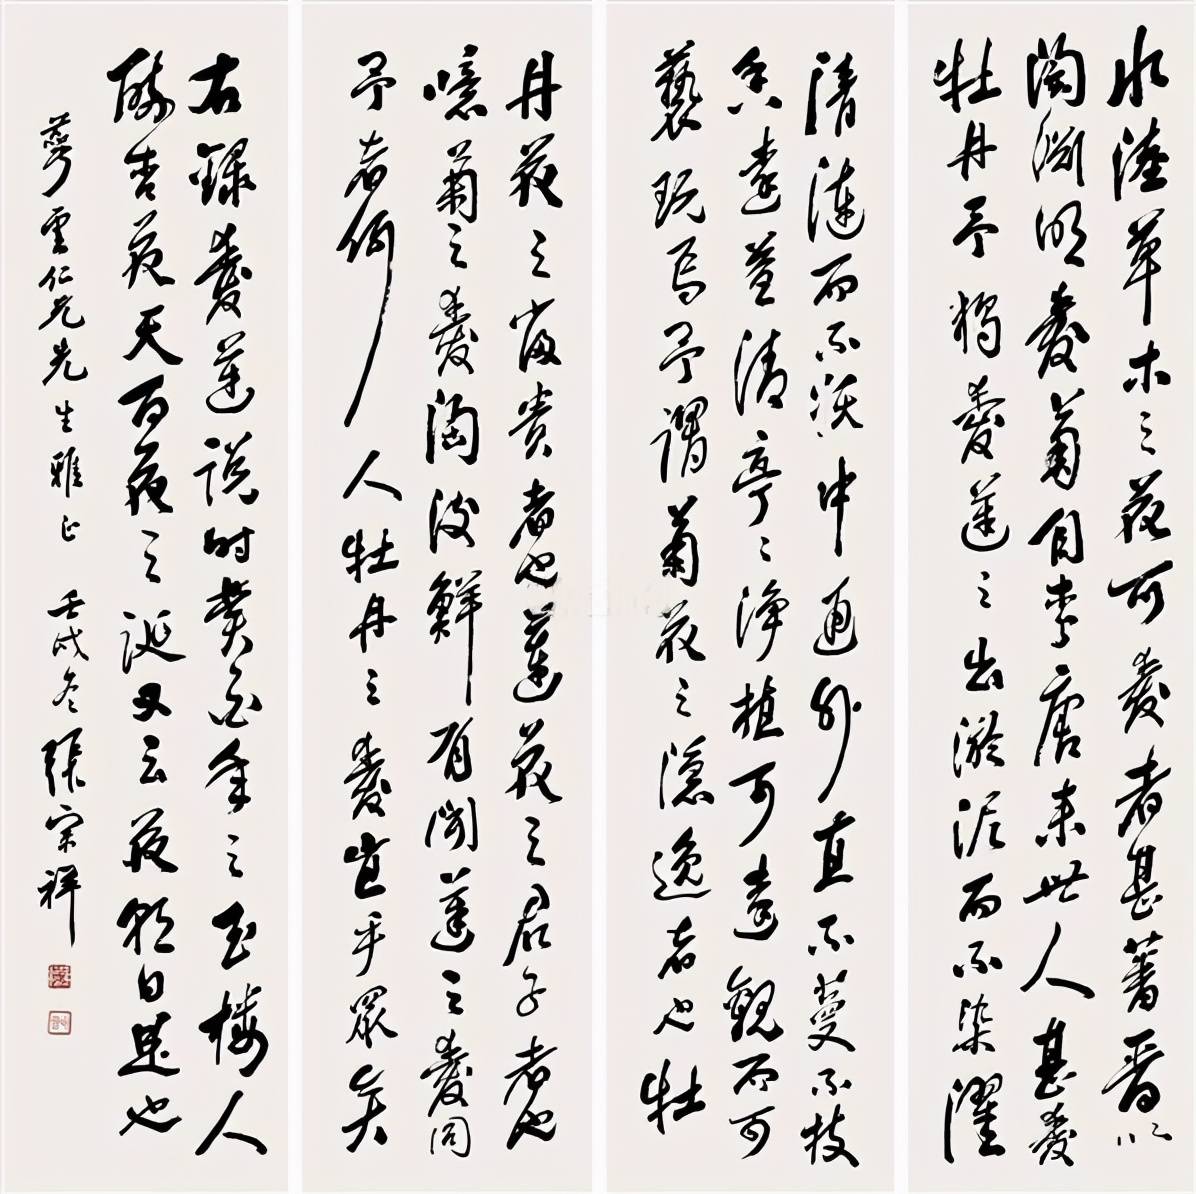 水陸草木之花可愛者甚蕃晉
陶淵明愛菊自李唐來世人甚愛
牡丹予獨愛蓮之出淤泥而不染濯
清漣而不妖中通外直不蔓不枝
香遠益清亭〻淨植可遠觀而可
褻玩焉予謂菊花之隱逸者也牡
丹花之富貴者也蓮花之君子者也
噫菊之愛陶後鮮有聞蓮之愛同
予者何人牡丹之愛宜乎眾矣
右錄愛蓮說時年之玉樓人
醉杏花天百花之誕又云花朝日是也
蕚雲仁兄先生雅正 壬戌冬 張宗祥